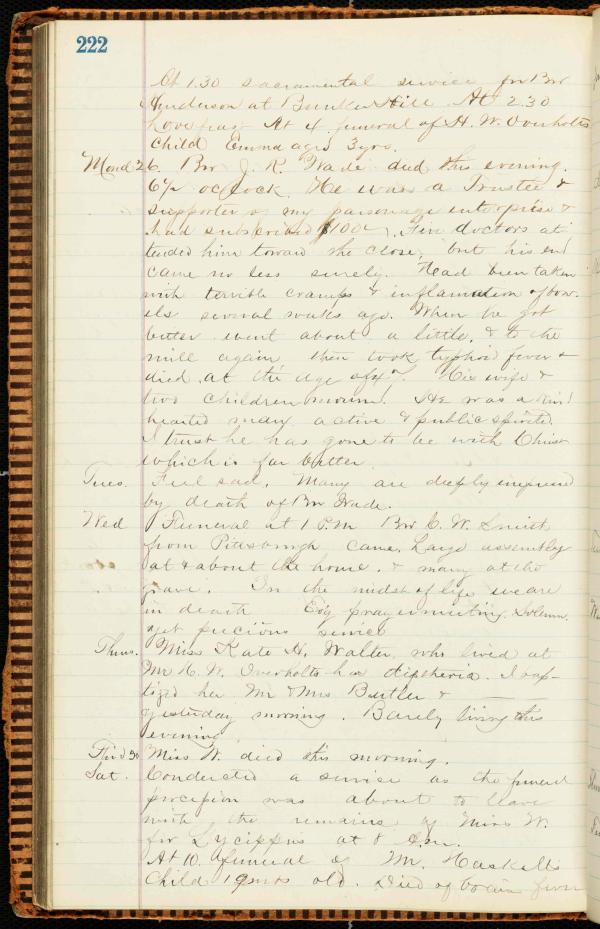 222
At 1.30 sacramental service for Bro
Anderson at Bunker Hill. At 2.30
Lovefeast At 4 funeral of H. W. Overholts
child Emma aged 3 yrs.
Mond 26. Bro J. K. Wade died this evening.
6 1/2 oclock. He was a Trustee &
supporter of my parsonage enterprise &
had subscribed $100. Five doctors at
tended him toward the close, but his end
came no less surely. Head been taken
with terrible cramps & inflamation of bow-
els several weaks ago. When he got
better went about a little, & to the
mill again then took typhoid fever &
died at the age of. His wife &
two children mourn. He was a kind
hearted man, active & public spirited.
I trust he has gone to be with Christ
which is far better.
Tues. Feel sad. Many are deeply impressed
by death of Bro Wade.
Wed Funeral at 1 P.M Bro C. W. Smith
from Pittsburgh came. Large assembly
at & about the home. & many at the
grave. In the midst of life we are
in death Eve'g prayermeeting. Solemn.
yet precious service
Thurs. Miss Kate H. Waller, who lived at
Mr H. W. Overholts has diptheria. I bap-
tized her Mr & Mrs Butler & —
yesterday morning. Barely living this
evening
Frid 30 Miss W. died this morning.
Sat. Conducted a service as the funeral
procession was about to leave
with the remains of Miss W.
for Lycippus at 8 A.M.
At 10. funeral of Mr. Haskells
Child 19 mts old. Died of brain fever